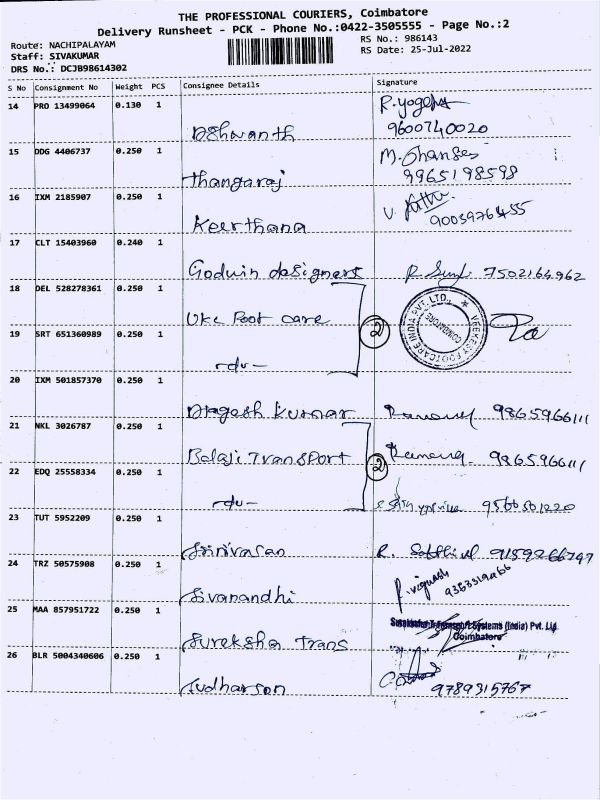 THE PROFESSIONAL COURIERS, Coimbatore
Delivery Runsheet - PCK - Phone No.:0422-3505555 - Page No.:2
Route: NACHIPALAYAM
RS No.: 986143
Staff: SIVAKUMAR
RS Date: 25-Jul-2022
DRS No.: DCJB98614302
S No Consignment No Weight PCS Consignee Details Signature
14 PRO 13499064 0.130 1
Ashwanth 9600740020
15 DDG 4406737 0.250 1
Thangaraj 9965198598
16 IXM 2185907 0.250 1
Keerthana
17 CLT 15403960 0.240 1
Godwin designers 7502164962
18 DEL 528278361 0.250 1
Ukc Foot care
2
VEEKESY FOOTCARE INDIA PVT. LTD.
COIMBATORE
19 SRT 651360989 0.250 1
-do-
20 IXM 501857370 0.250 1
Kumar 9865966111
21 NKL 3026787 0.250 1
Balaji Transport 9865966111
2
22 EDQ 25558334 0.250 1
-do-
23 TUT 5952209 0.250 1
Srinivasan
24 TRZ 50575908 0.250 1
Sivanandhi
25 MAA 857951722 0.250 1
Systems (India) Pvt. Ltd
Coimbatore
Sureksha Trans
26 BLR 5004340606 0.250 1
Sudharson 9789315767